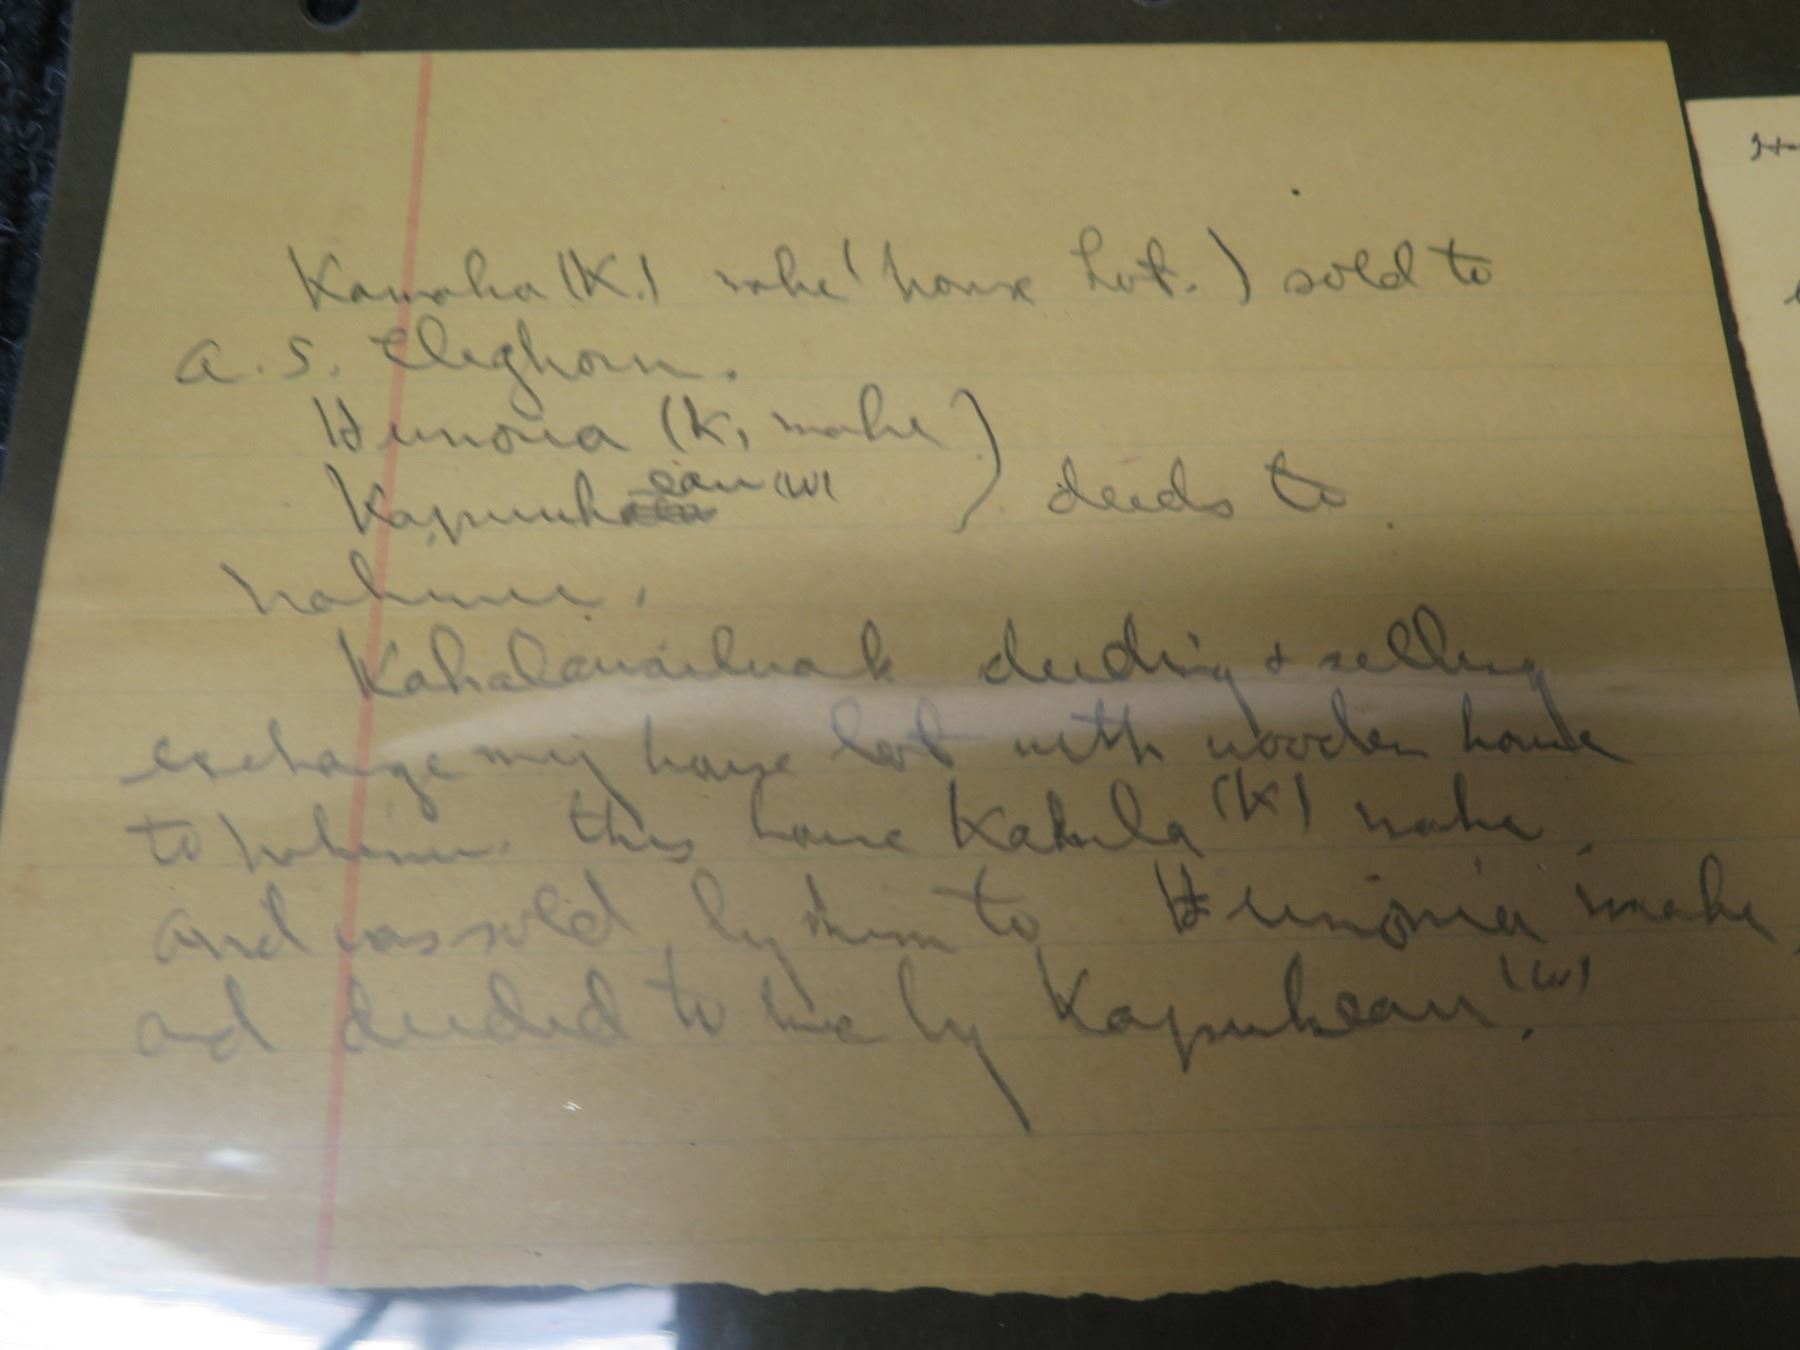 Kamaha (K.) make (house Lot.) sold to
A. S. Cleghorn.
Hunonia (K, make)
Kapuukeau (W) ) deeds to
Nahinu.
deeding & selling
exchange my house lot with wooden house
to Nahinu. this house Kakula (K) make
and was sold by him to Hunonia make
and deeded to me by Kapuukeau (W)